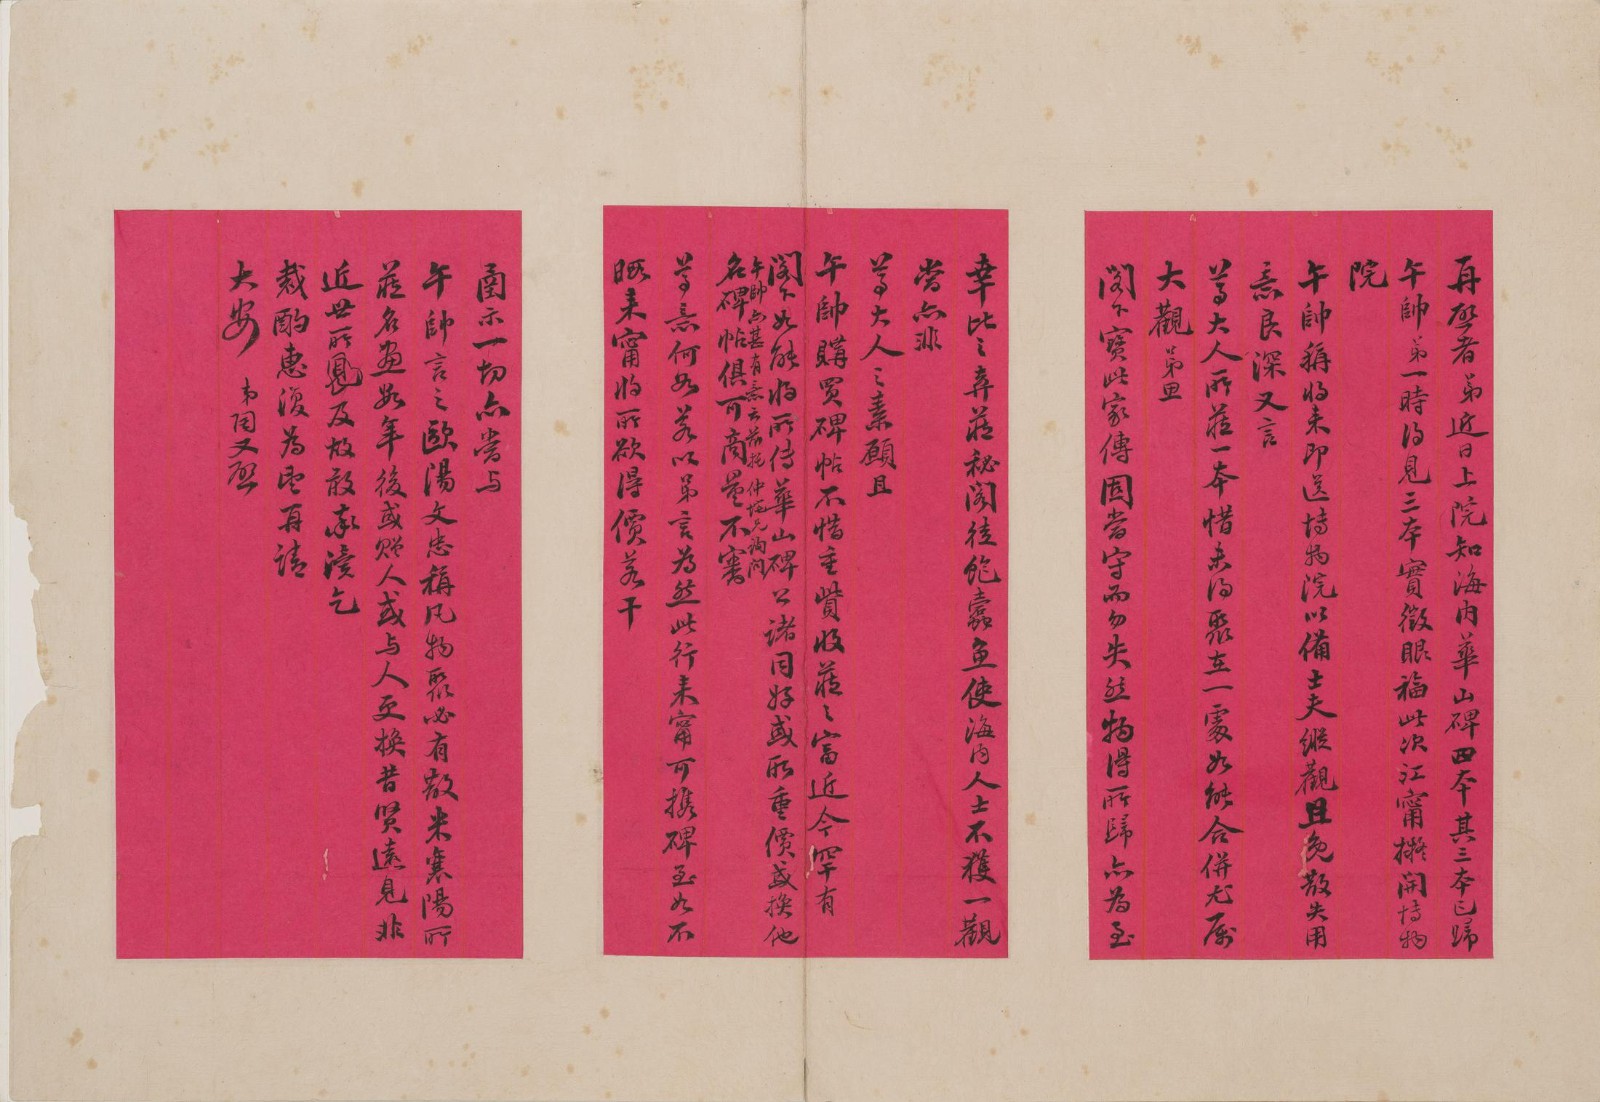 再啓者弟近日上院知海内華山碑四本其三本已歸
午帥弟一時得見三本實徵眼福此次江甯擬開博物
院
午帥稱將来即送博物院以備士夫縱觀且免散失用
意良深又言
尊大人所藏一本惜未得聚在一處如能合併尤属
大觀弟思
閣下寳此家傳固當守而勿失然物得所歸亦為至
幸比之弆藏秘閣徒飽蠹魚使海内人士不獲一觀
當亦非
尊大人之素願且
午帥購買碑帖不惜重貲收藏之富近今罕有
閣下如能將所傳華山碑公諸同好或取重價或换他
午帥亦甚有意云前托仲 兄詢问
名碑帖俱可商量不審
尊意何如若以弟言為然此行来甯可携碑至如不
暇来甯將所欲得價若干
圅示一切亦當与
午帥言之歐陽文忠稱凡物聚必有散米襄陽所
蔵名畫数年後或贈人或与人更换昔賢遠見非
近世所 及故敢承凟乞
裁酌惠復為盼再請
大安 弟 又啓